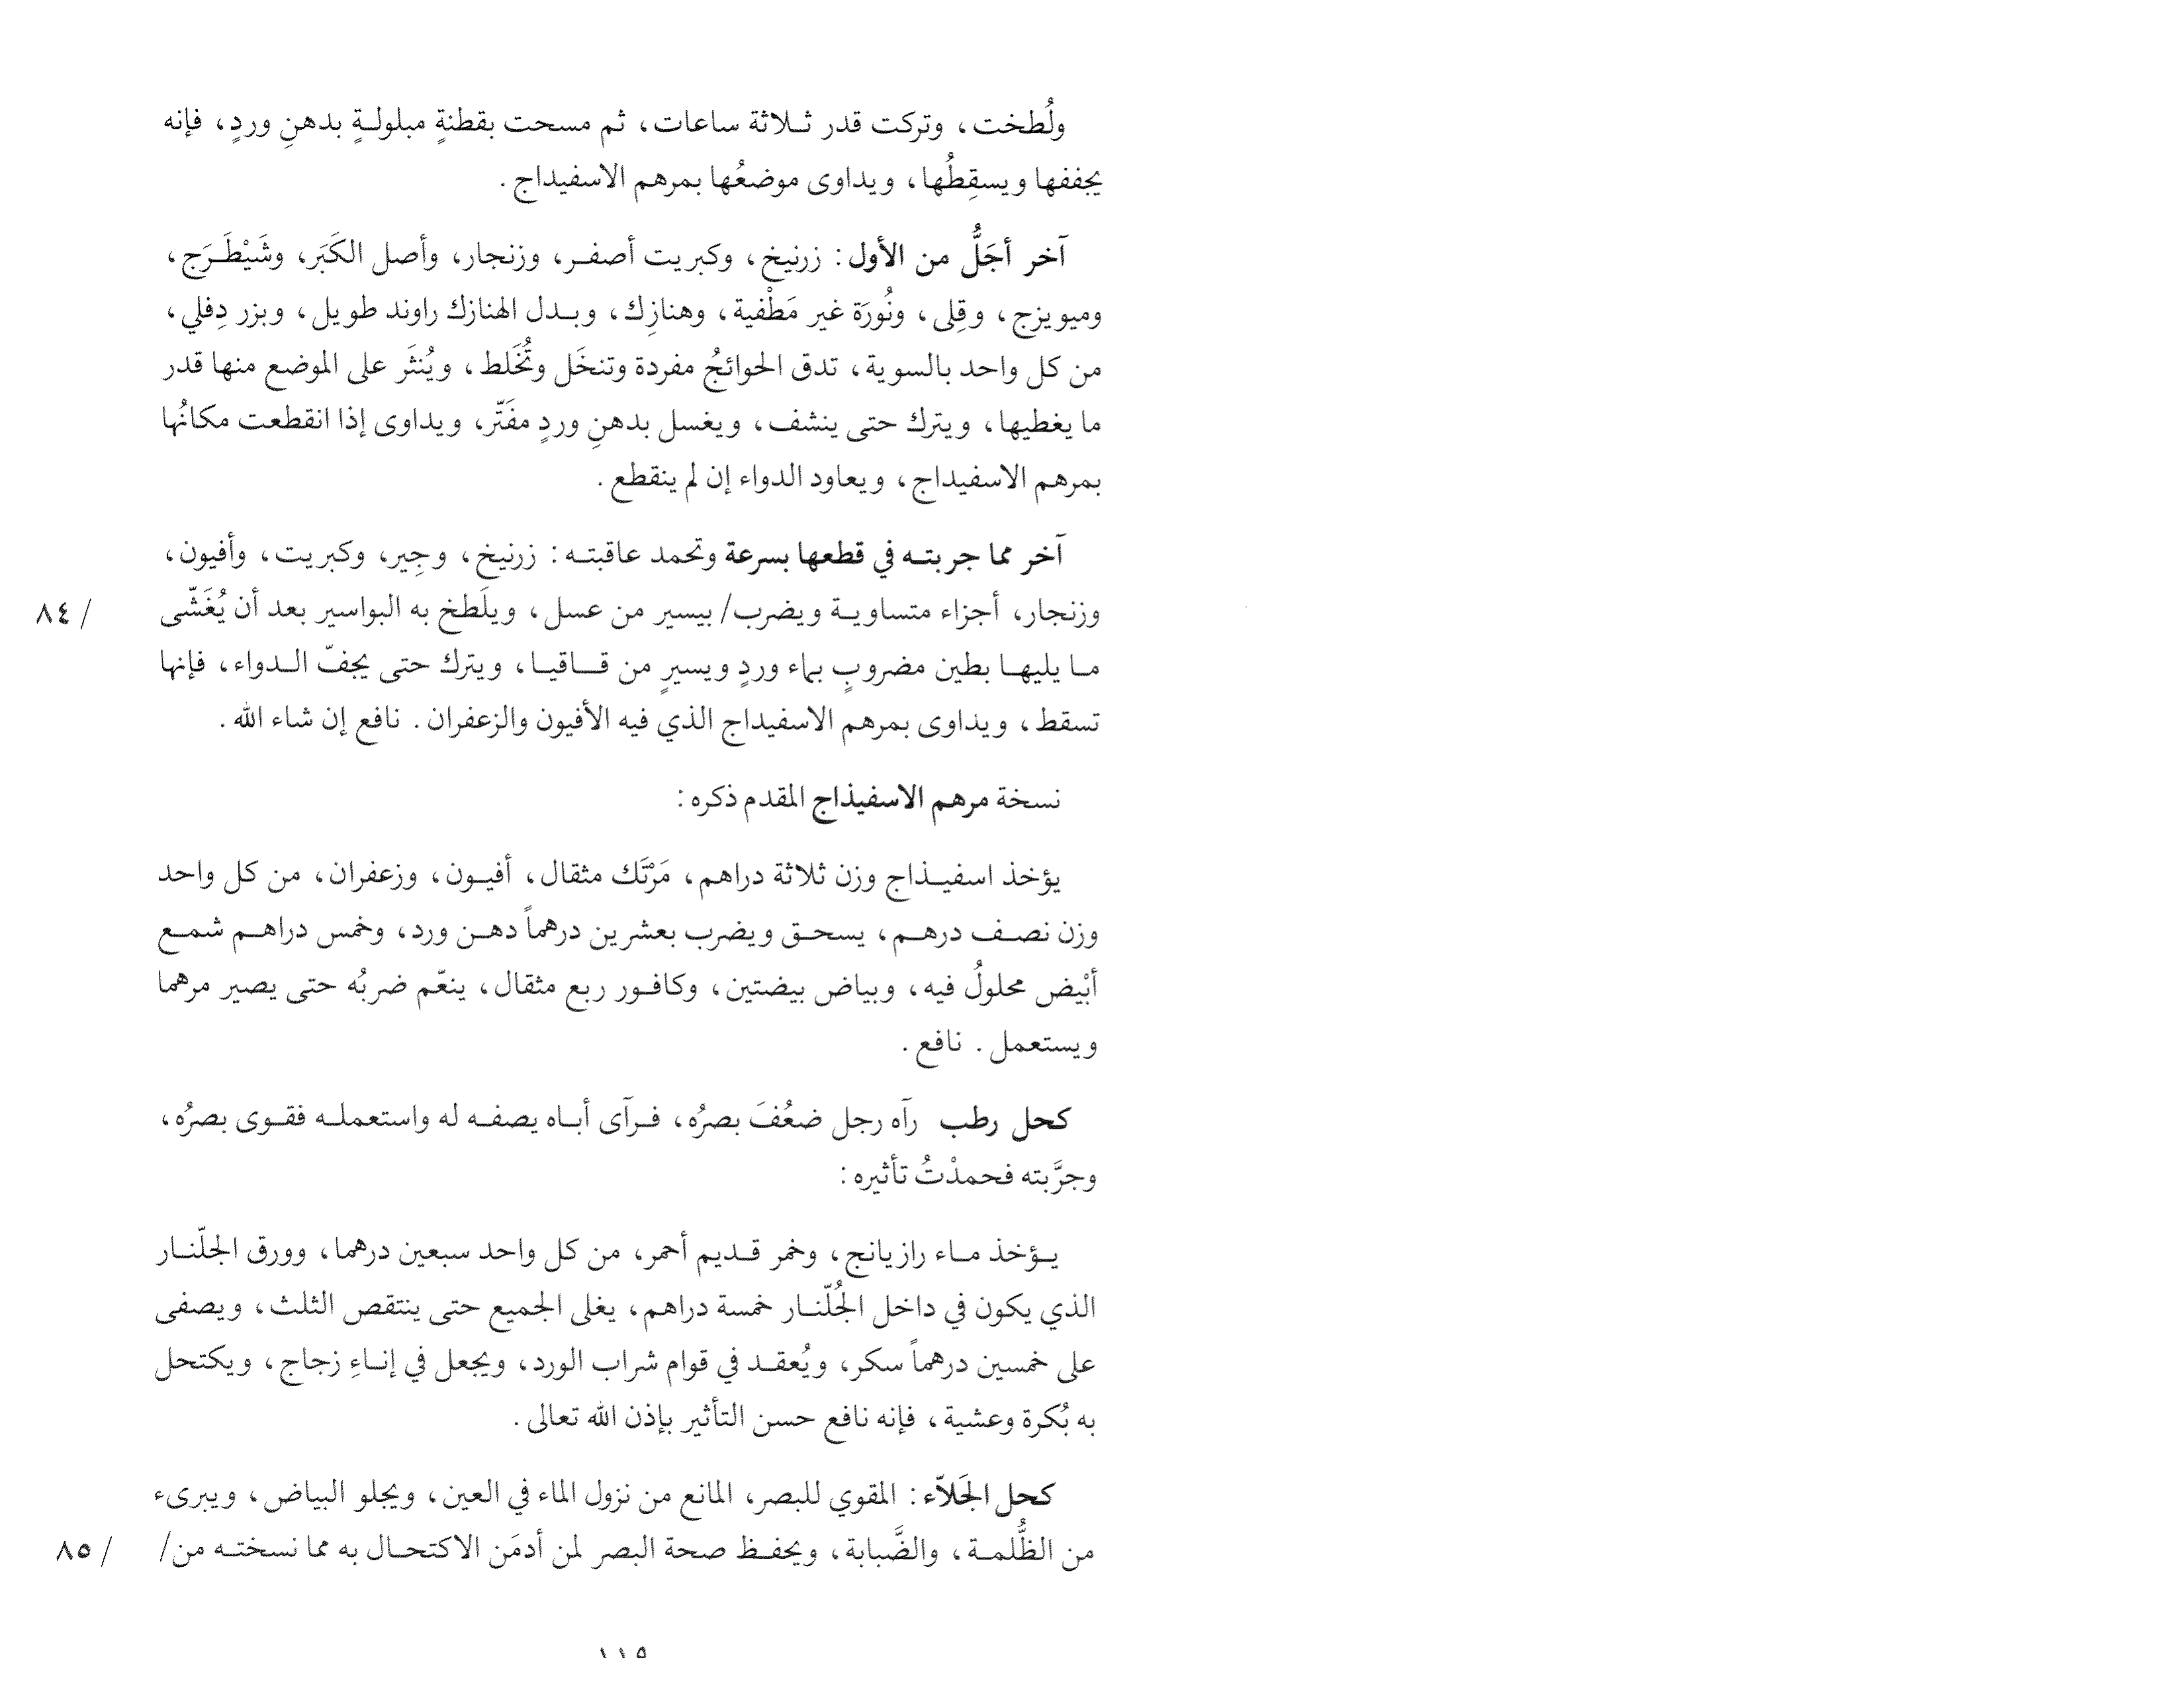 ولُطخت، وتركت قدر ثلاثة ساعات، ثم مسحت بقطنةٍ مبلولةٍ بدهنِ وردٍ، فإنه
يجففها ويسقِطُها، ويداوى موضعُها بمرهم الاسفيداج.
آخر أجَلُّ من الأول: زرنيخ، وكبريت أصفر، وزنجار، وأصل الكَبَر، وشَيْطَرَج،
وميويزج، وقِلى، ونُورَة غير مَطْفية، وهنازِك، وبدل الهنازك راوند طويل، وبزر دِفلي،
من كل واحد بالسوية، تدق الحوائجُ مفردة وتنخَل وتُخَلط، ويُنثَر على الموضع منها قدر
ما يغطيها، ويترك حتى ينشف، ويغسل بدهنِ وردٍ مفَتّر، ويداوى إذا انقطعت مكانُها
بمرهم الاسفيداج، ويعاود الدواء إن لم ينقطع.
آخر مما جربته في قطعها بسرعة وتحمد عاقبته: زرنيخ، وجِير، وكبريت، وأفيون،
وزنجار، أجزاء متساوية ويضرب/ بيسير من عسل، ويلَطخ به البواسير بعد أن يُغَشّى
/ ٨٤
ما يليها بطين مضروبٍ بماء وردٍ ويسيرٍ من قاقيا، ويترك حتى يجفّ الدواء، فإنها
تسقط، ويداوى بمرهم الاسفيداج الذي فيه الأفيون والزعفران. نافع إن شاء الله.
نسخة مرهم الاسفيذاج المقدم ذكره:
يؤخذ اسفيذاج وزن ثلاثة دراهم، مَرْتَك مثقال، أفيون، وزعفران، من كل واحد
وزن نصف درهم، يسحق ويضرب بعشرين درهماً دهن ورد، وخمس دراهم شمع
أبْيض محلولُ فيه، وبياض بيضتين، وكافور ربع مثقال، ينعّم ضربُه حتى يصير مرهما
ويستعمل. نافع.
كحل رطب رآه رجل ضعُفَ بصرُه، فرآى أباه يصفه له واستعمله فقوى بصرُه،
وجرَّبته فحمدْتُ تأثيره:
يؤخذ ماء رازيانج، وخمر قديم أحمر، من كل واحد سبعين درهما، وورق الجلّنار
الذي يكون في داخل الجُلّنار خمسة دراهم، يغلى الجميع حتى ينتقص الثلث، ويصفى
على خمسين درهماً سكر، ويُعقد في قوام شراب الورد، ويجعل في إناءِ زجاج، ويكتحل
به بُكرة وعشية، فإنه نافع حسن التأثير بإذن الله تعالى.
كحل الجَلاّء: المقوي للبصر، المانع من نزول الماء في العين، ويجلو البياض، ويبرىء
من الظُّلمة، والضَّبابة، ويحفظ صحة البصر لمن أدمَن الاكتحال به مما نسخته من/
/ ٨٥
١١٥